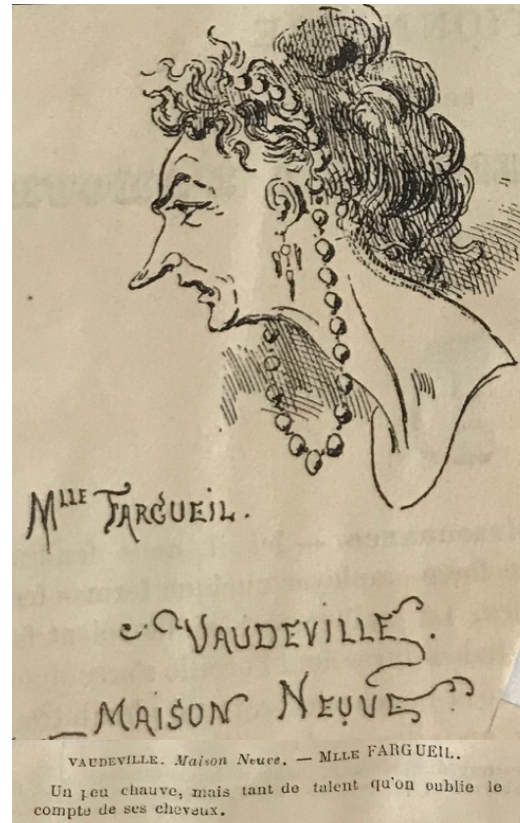 MLLE FARGUEIL.
VAUDEVILLE.
_MAISON NEUVE
VAUDEVILLE. Maison Neuve. — MLLE FARGUEIL.
Un peu chauve, mais tant de talent qu'on oublie le
compte de ses cheveux.